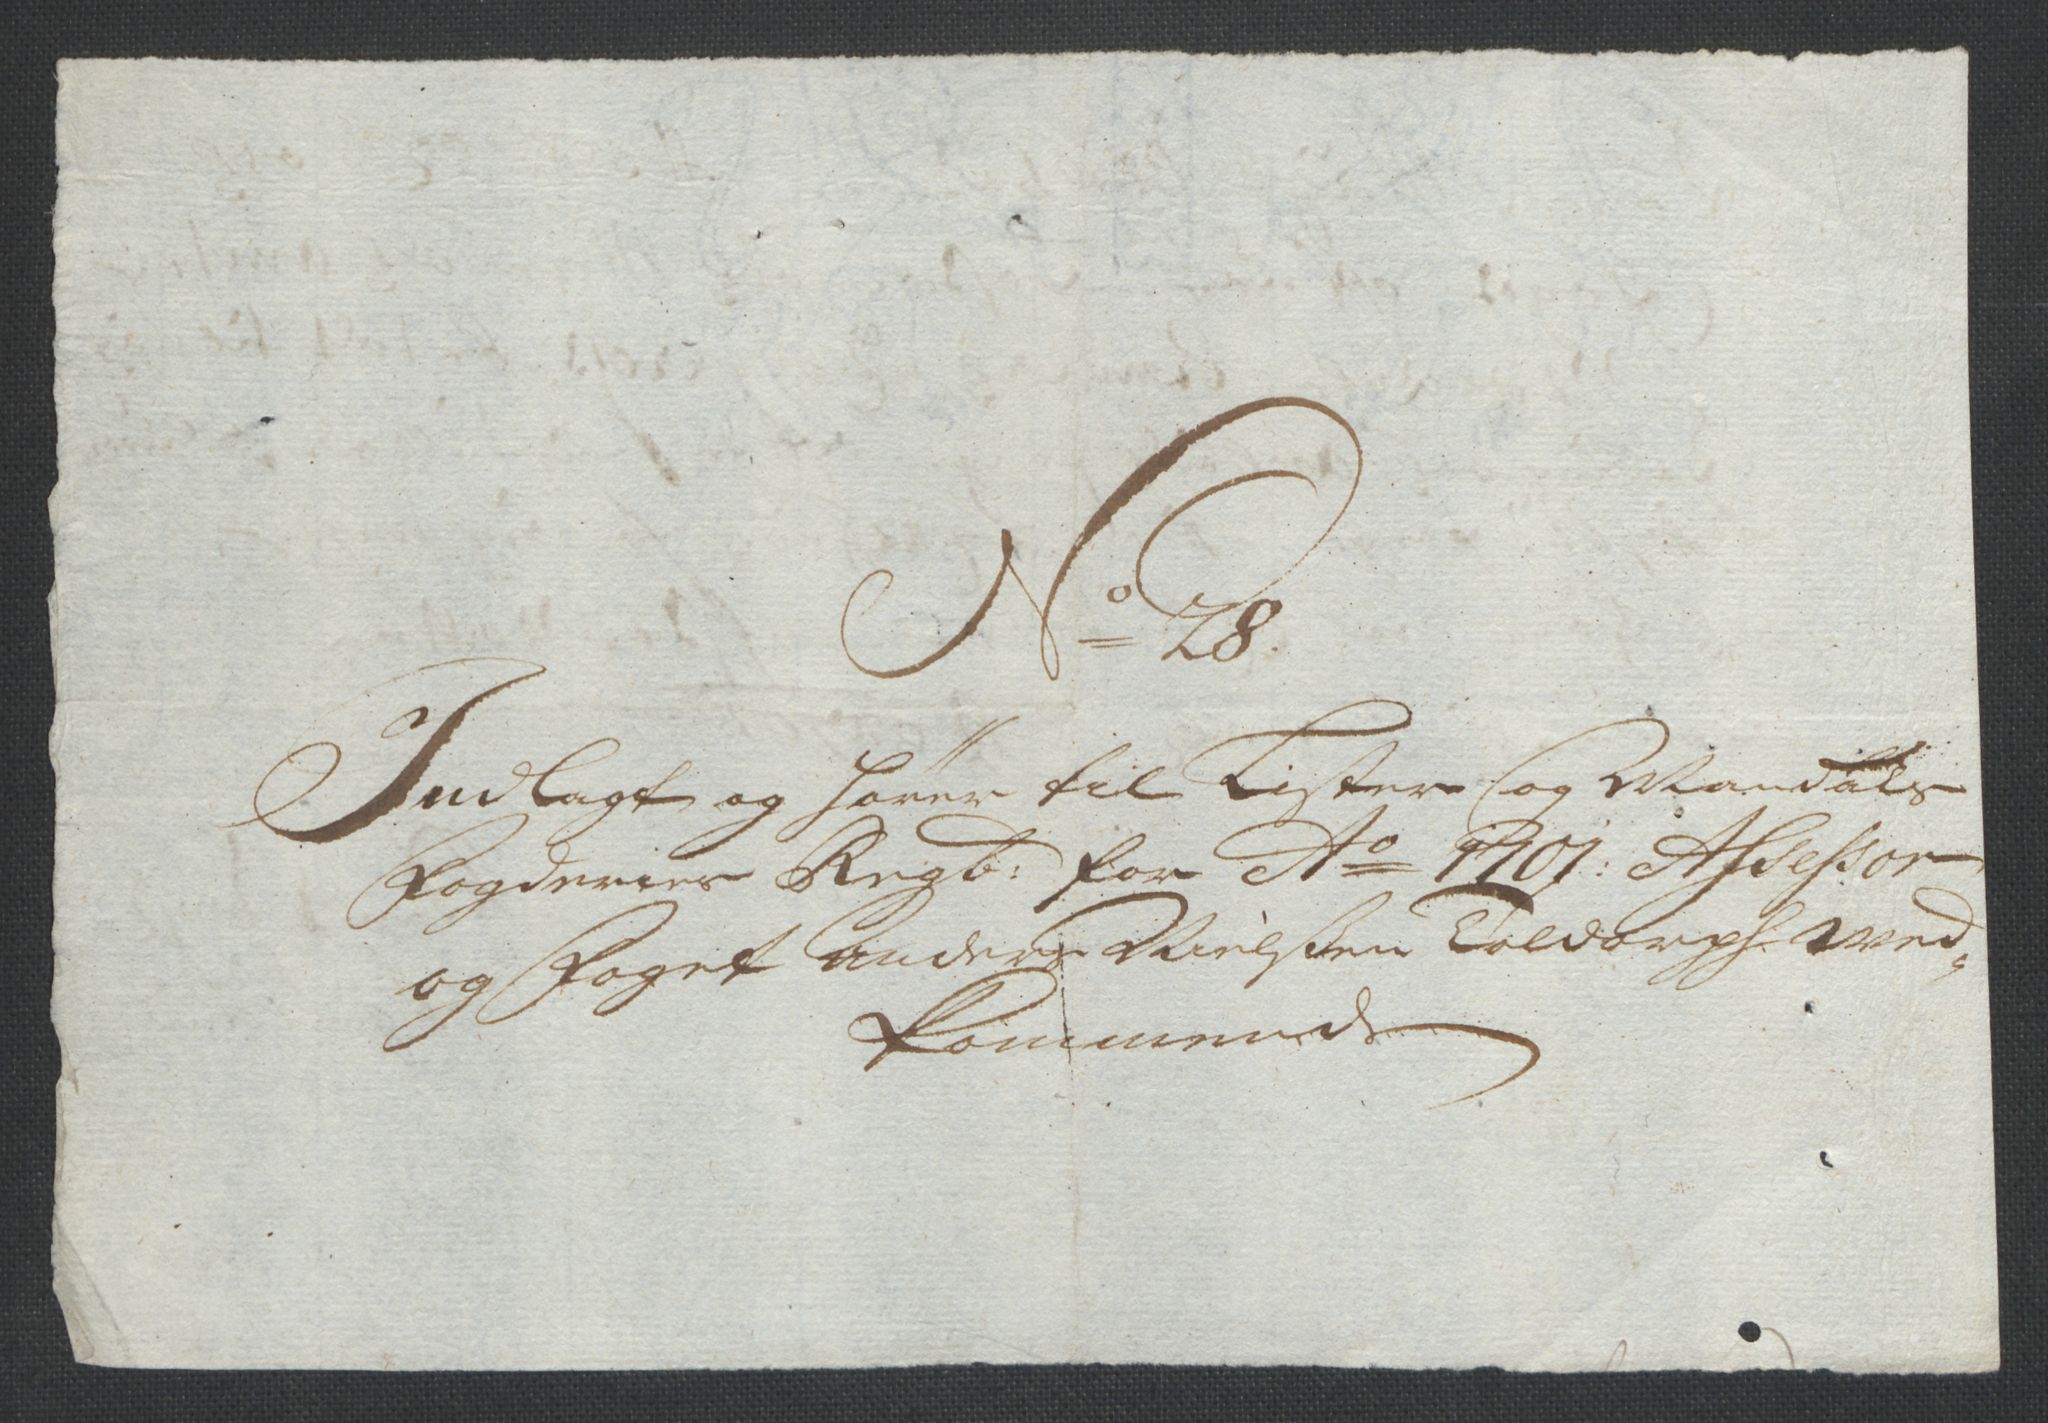 No 28.
Indlagt og hører til Lister og Mandals
Fogderies Regb: for Ao 1701: Assessor
og Foget Anders Nielssen Toldorph wed,
kommende